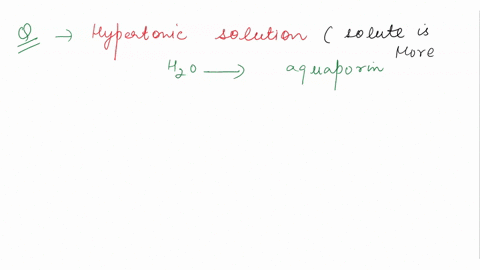 Q → Hypertonic solution ( solute is
More
H2O → aquaporin